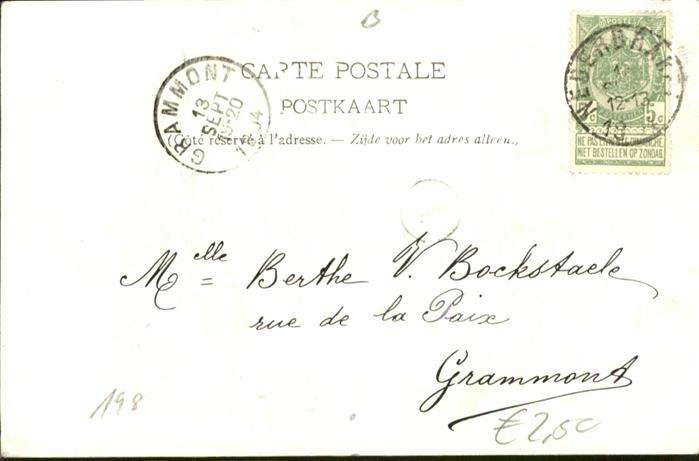 B
CARTE POSTALE
POSTKAART
(Côté réservé à l'adresse. — Zijde voor het adres alleen.)
GRAMMONT
13
SEPT
15-20
POSTES
NEDERBRAKEL
12-13
13
5c
NE PAS LIVRER LE DIMANCHE
NIET BESTELLEN OP ZONDAG
Melle = Berthe V. Bockstaele
rue de la Paix
Grammont
198
€2,50